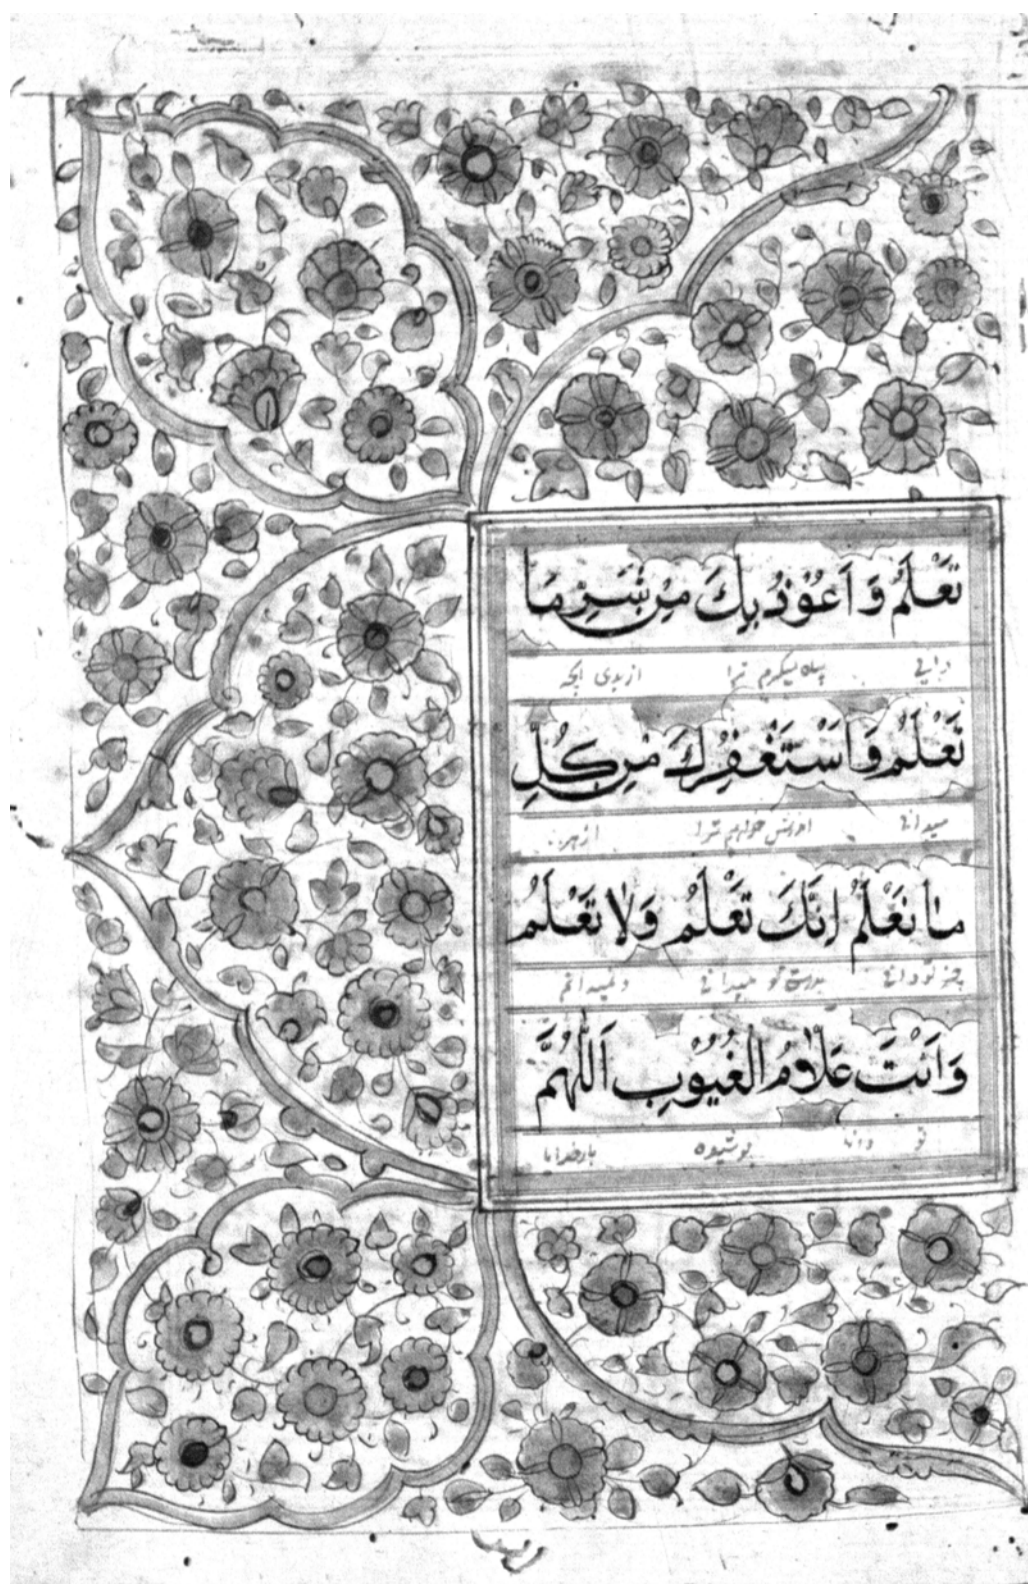 تَعْلَمُ وَاَعُوْذُ بِكَ مِنْ شَرِّ مَا
دانی پناه میگیرم ترا از بدی آنچه
تَعْلَمُ وَاَسْتَغْفِرُكَ مِنْ كُلِّ
میدانی ترا از هر
مَا تَعْلَمُ اِنَّكَ تَعْلَمُ وَلَا تَعْلَمُ
تو دانی بدرستی تو میدانی و نمیدانم
وَاَنْتَ عَلَّامُ الْغُيُوْبِ اَللّٰهُمَّ
تو پوشیده بارخدایا